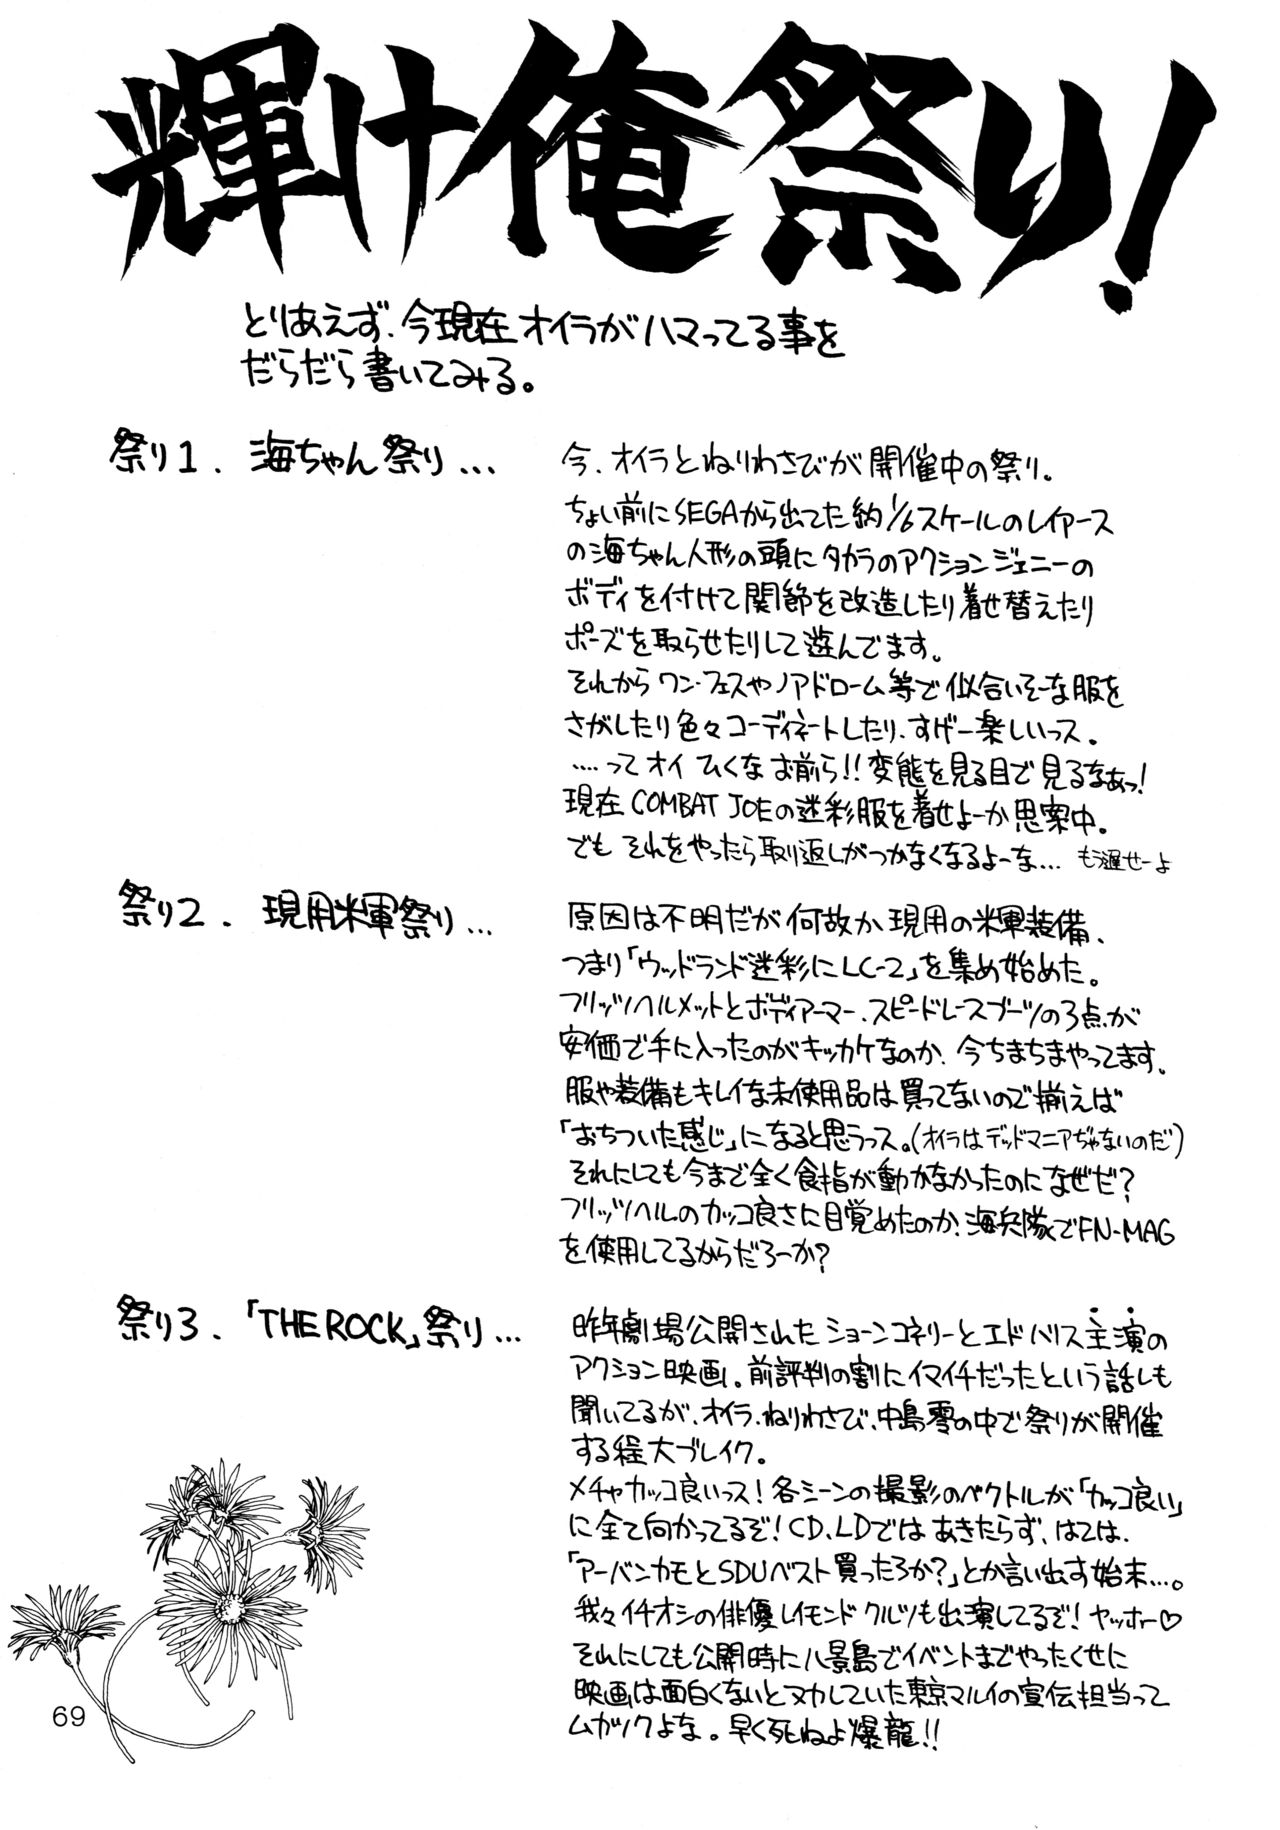 輝け俺祭り!
とりあえず、今現在オイラがハマってる事を
だらだら書いてみる。
祭り1. 海ちゃん祭り...
今、オイラとねりわさびが開催中の祭り。
ちょい前にSEGAから出てた約1/6スケールのレイアース
の海ちゃん人形の頭にタカラのアクションジェニーの
ボディを付けて関節を改造したり着せ替えたり
ポーズを取らせたりして遊んでます。
それからワン・フェスやノアドローム等で似合いそーな服を
さがしたり色々コーディネートしたり、すげー楽しいっス。
....ってオイひくなお前ら!!変態を見る目で見るなぁっ!
現在COMBAT JOEの迷彩服を着せよーか思案中。
でもそれをやったら取り返しがつかなくなるよーな... もう遅せーよ
祭り2. 現用米軍祭り...
原因は不明だが何故か現用の米軍装備、
つまり「ウッドランド迷彩にLC-2」を集め始めた。
フリッツヘルメットとボディアーマー、スピードレースブーツの3点が
安価で手に入ったのがキッカケなのか、今ちまちまやってます。
服や装備もキレイな未使用品は買ってないので揃えば
「おちついた感じ」になると思うっス。(オイラはデッドマニアぢゃないのだ)
それにしても今まで全く食指が動かなかったのになぜだ?
フリッツヘルのカッコ良さに目覚めたのか、海兵隊でFN-MAG
を使用してるからだろーか?
祭り3. 「THE ROCK」祭り...
昨年劇場公開されたショーンコネリーとエドハリス主演の
アクション映画。前評判の割にイマイチだったという話しも
聞いてるが、オイラ、ねりわさび、中島零の中で祭りが開催
する程大ブレイク。
メチャカッコ良いっス!各シーンの撮影のベクトルが「カッコ良い」
に全て向かってるぞ!CD、LDではあきたらず、はては、
「アーバンカモとSDUベスト買ったろか?」とか言い出す始末...。
我々イチオシの俳優レイモンドクルツも出演してるぞ!ヤッホー♡
それにしても公開時に八景島でイベントまでやったくせに
映画は面白くないとヌカしていた東京マルイの宣伝担当って
ムカツクよな。早く死ねよ爆龍!!
69